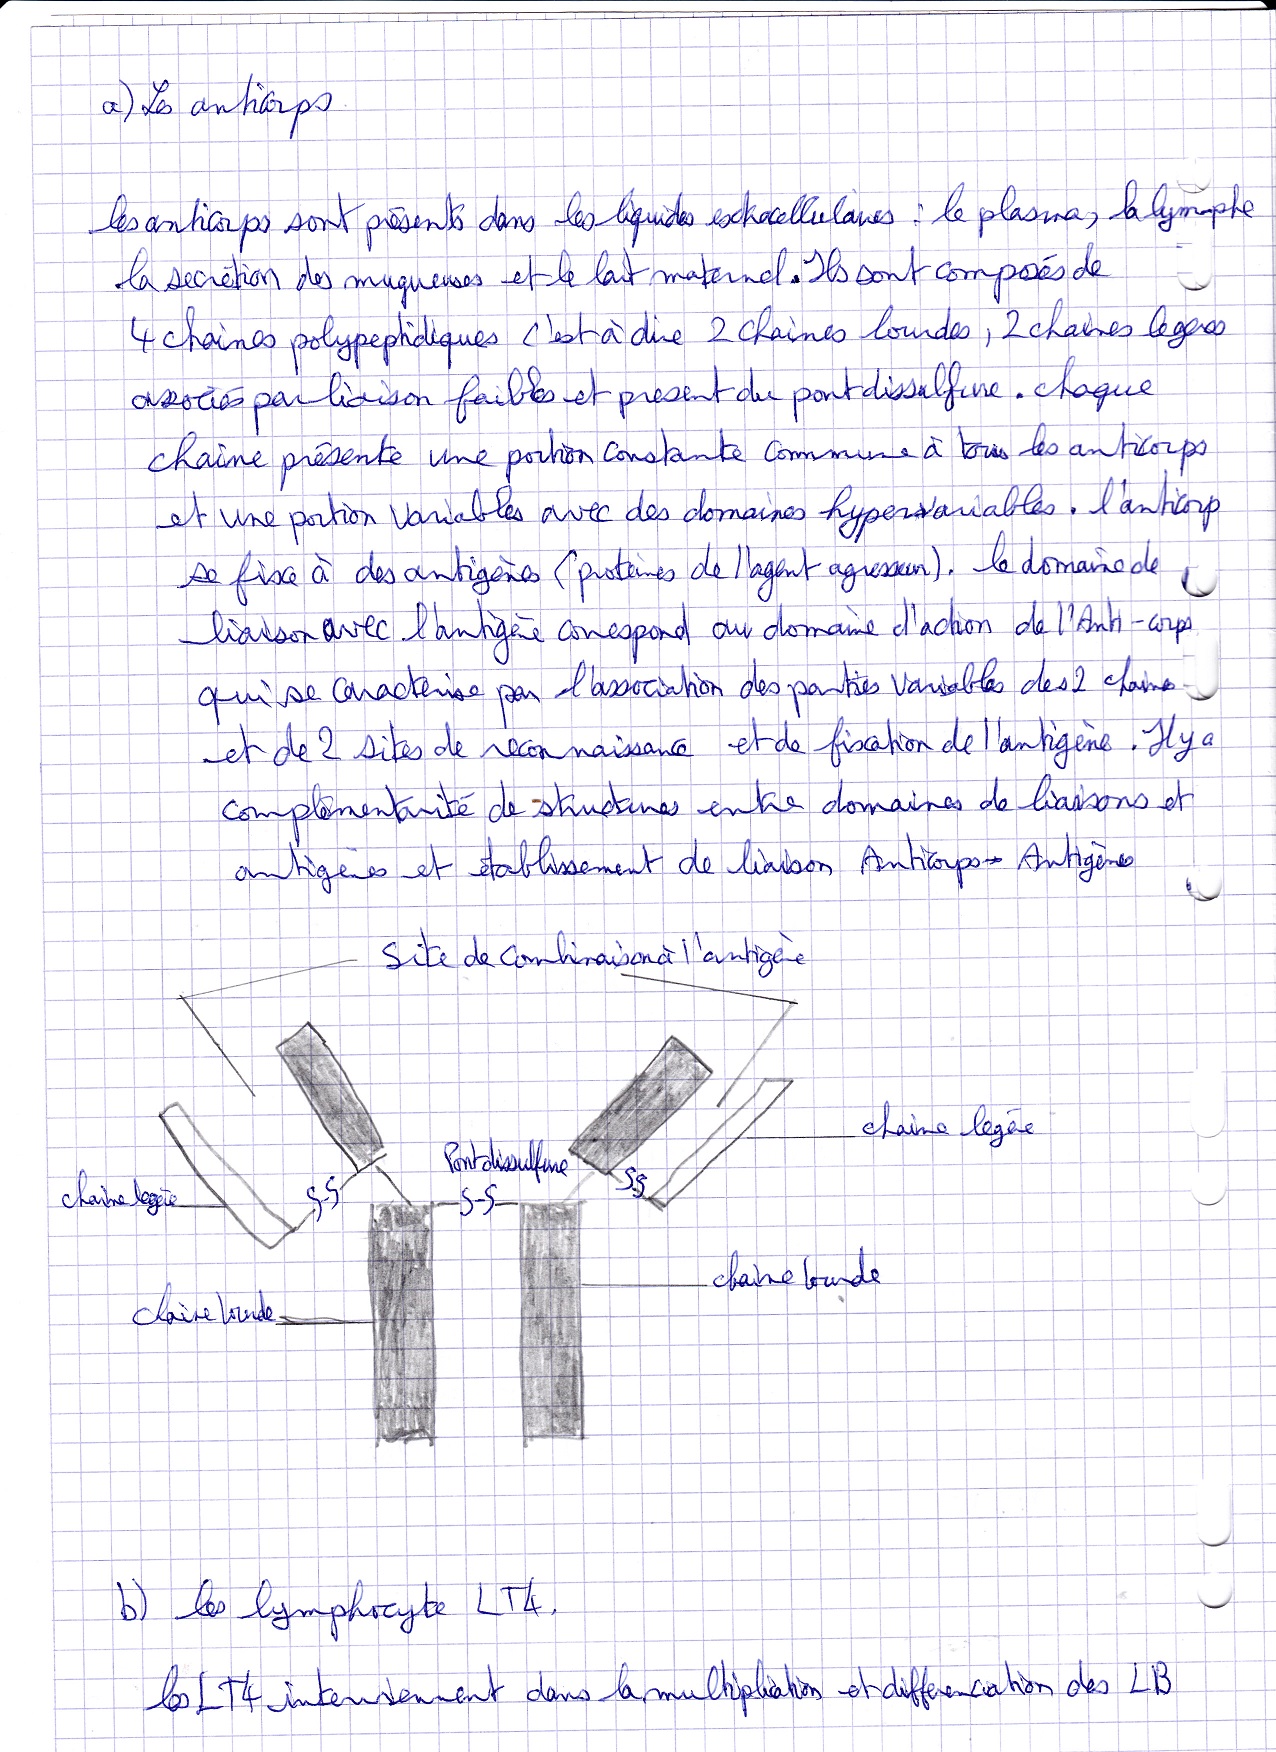 a) Les anticorps
les anticorps sont présents dans les liquides extracellulaires : le plasma, la lymphe
la secrétion des muqueuses et le lait maternel. Ils sont composés de
4 chaines polypeptidiques c'est à dire 2 chaines lourdes, 2 chaines legeres
associés par liaison faibles et present du pont dissulfure. chaque
chaine présente une portion constante commune à tous les anticorps
et une portion variables avec des domaines hypervariables. l'anticorp
se fixe à des antigènes (protéines de l'agent agresseur). le domaine de
liaison avec l'antigène correspond au domaine d'action de l'Anti-corps
qui se caracterise par l'association des parties variables des 2 chaines
et de 2 sites de reconnaissance et de fixation de l'antigène. Il y a
complémentarité de structures entre domaines de liaisons et
antigènes et établissement de liaison Anticorps - Antigènes
Site de combinaison à l'antigène
chaine legère
Pont dissulfure
chaine legère
S-S
S-S
S-S
chaine lourde
chaine lourde
b) les lymphocyte LT4.
les LT4 interviennent dans la multiplication et differenciation des LB